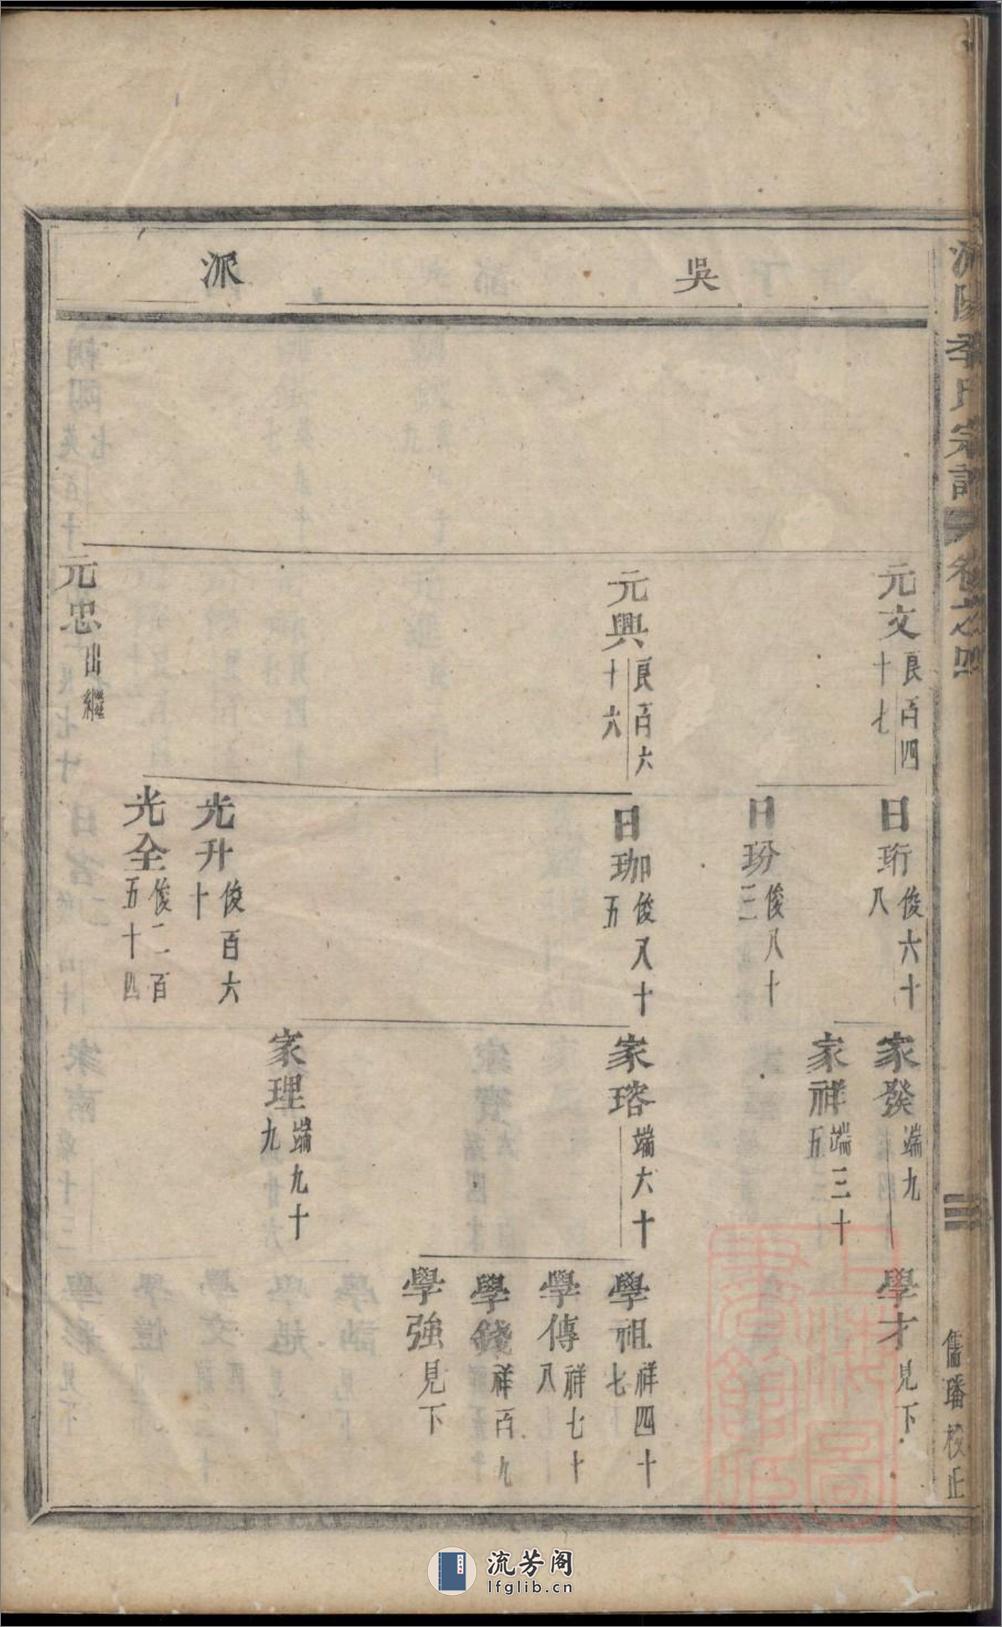 氏宗譜 卷之四
三
儒璠校正
吳
派
元文 良百四十七
元興 良百六十六
元忠 出繼
日珩 俊六十八
日玢 俊八十三
日珈 俊八十五
光升 俊百六十
光全 俊二百五十四
家發 端九
家祥 端三十五
家瑢 端六十
家理 端九十九
學才 見下
學祖 祥四十七
學傳 祥七十八
學錢 祥百九
學強 見下
流芳阁
lfglib.cn